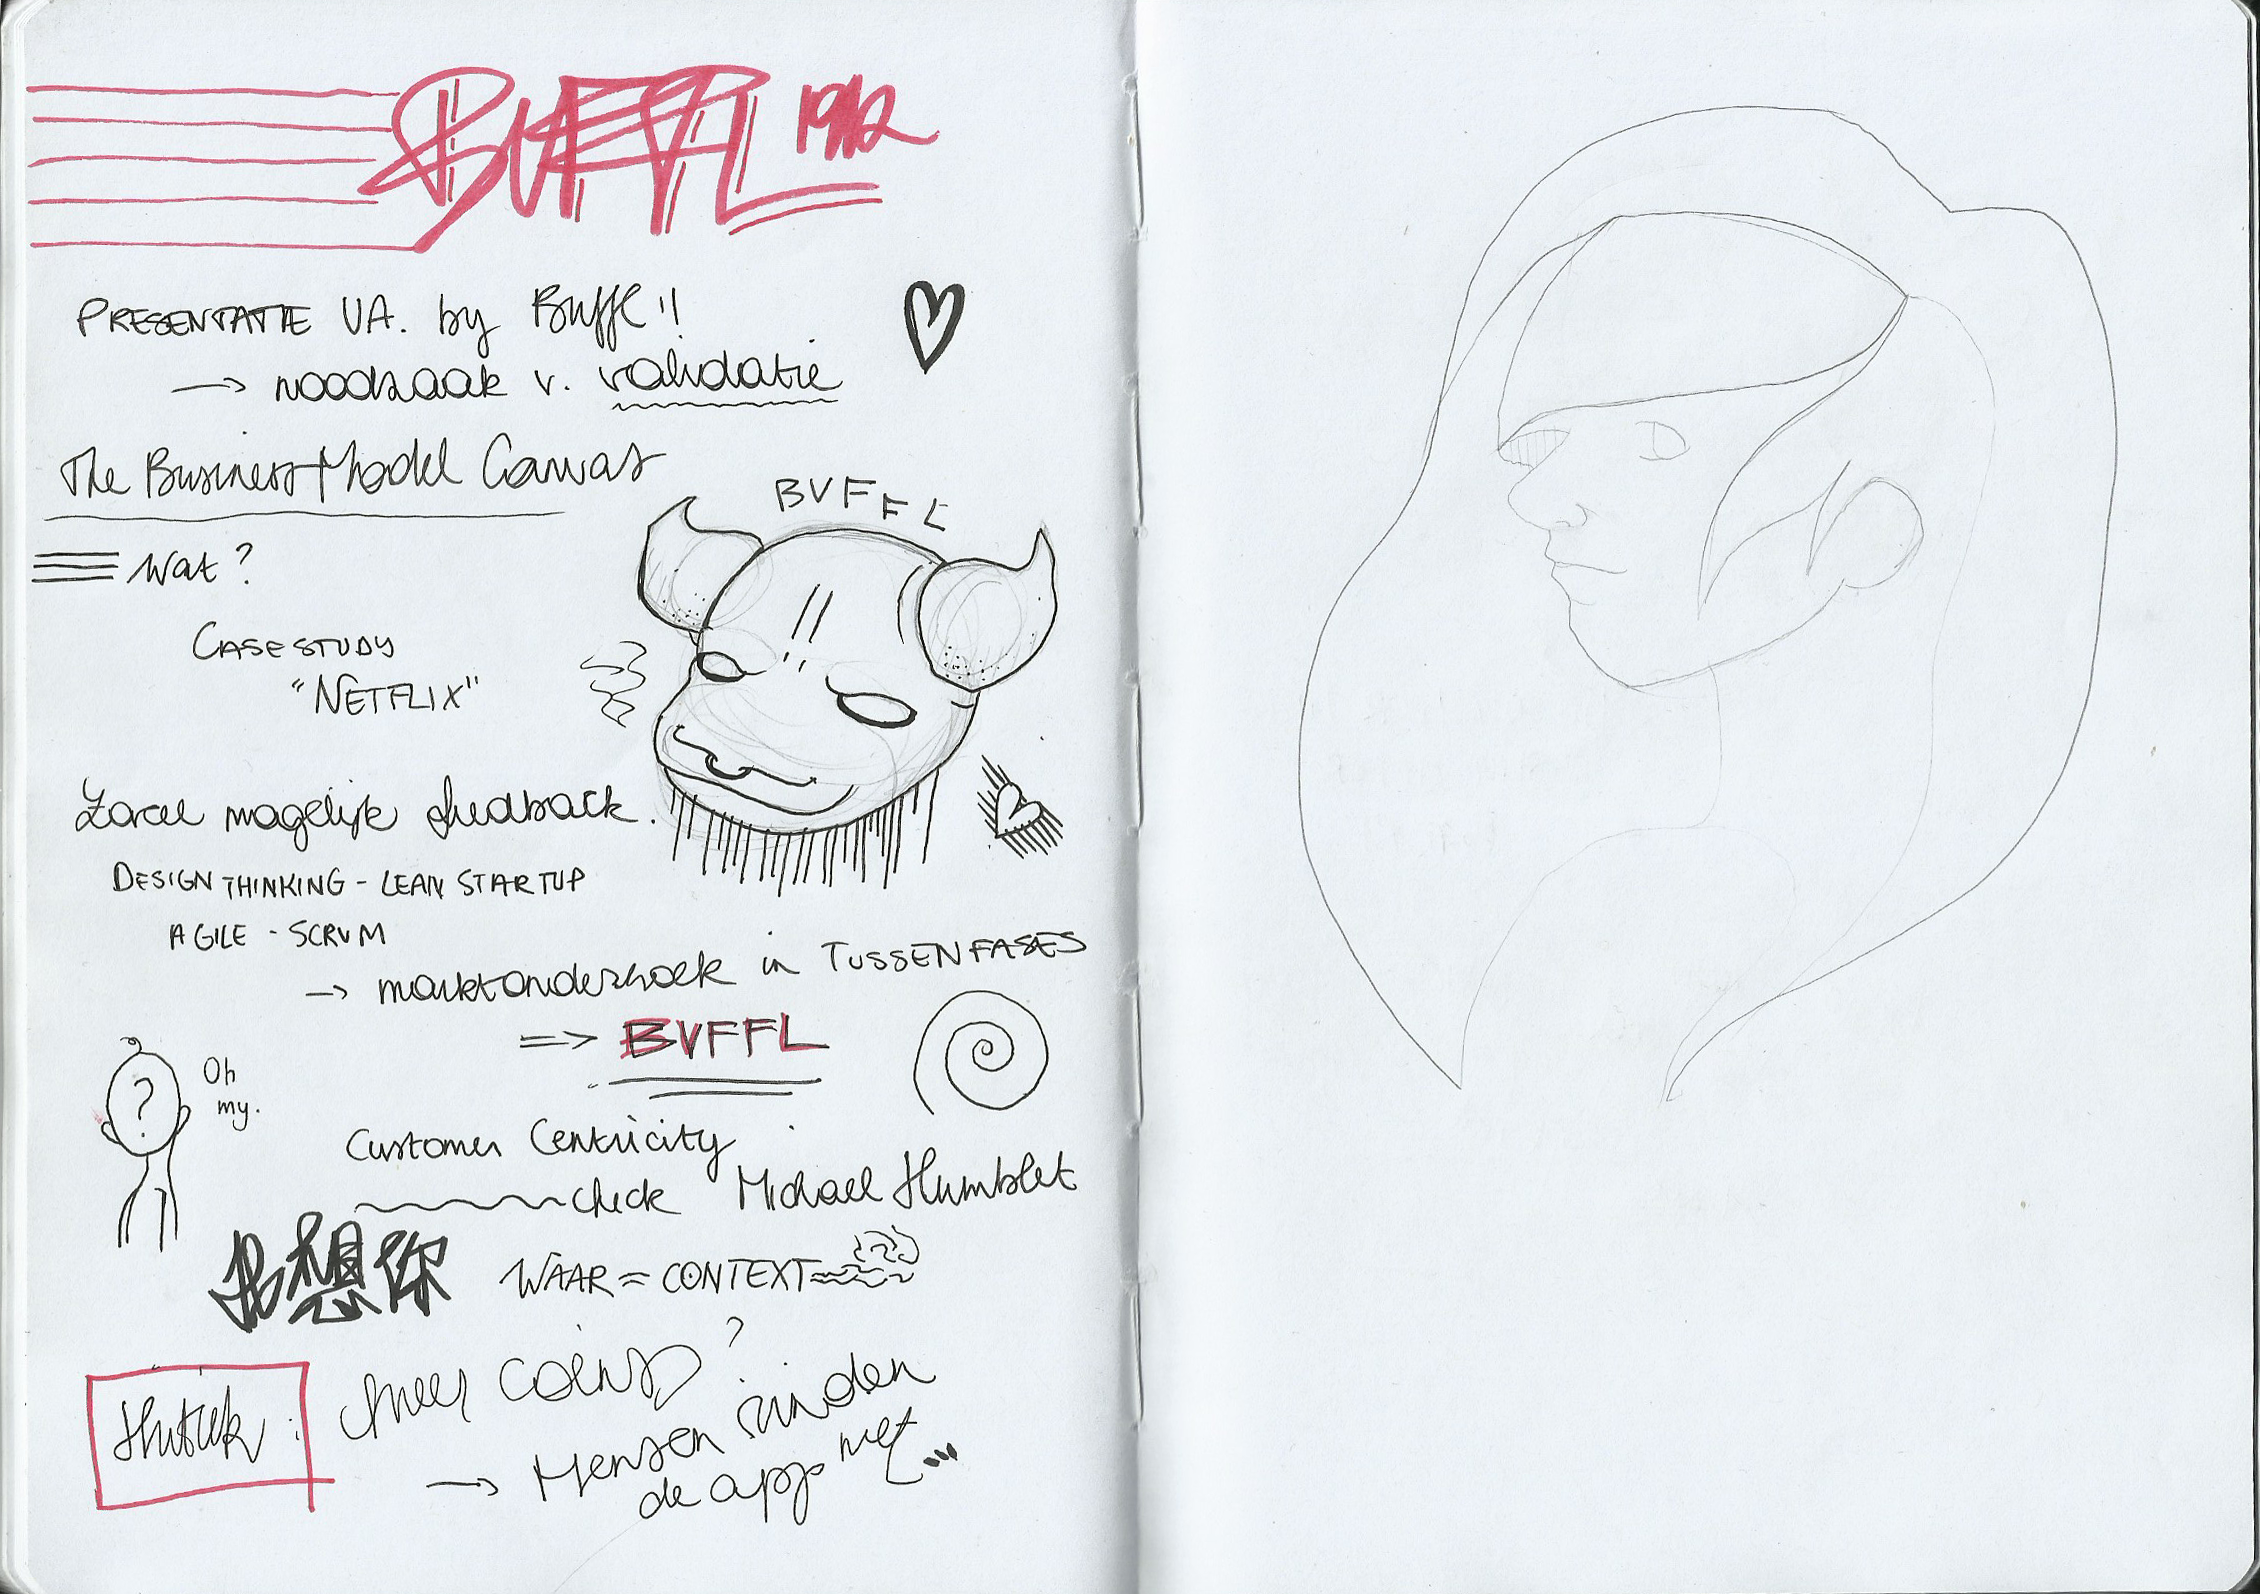 BUFFL 19/12
PRESENTATIE UA. by Buffl !!
→ noodzaak v. validatie
The Business Model Canvas
Wat?
BUFFL
CASESTUDY
"NETFLIX"
Zoveel mogelijk feedback.
DESIGN THINKING - LEAN STARTUP
AGILE - SCRUM
→ marktonderzoek in TUSSENFASES
=> BUFFL
?
Oh
my.
Customer Centricity
check Michael Humblet
我想你
WAAR = CONTEXT
coins?
→ Mensen vinden
de app niet...